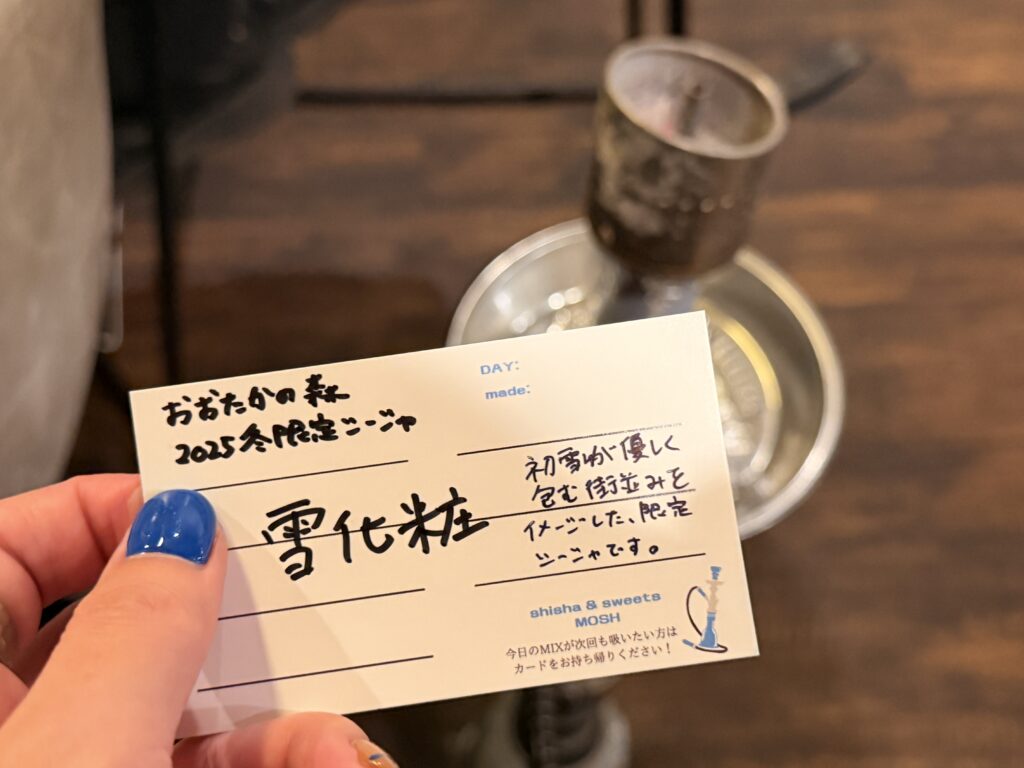 おおたかの森
2025冬限定シーシャ
雪化粧
DAY:
made:
初雪が優しく
包む街並みを
イメージした、限定
シーシャです。
shisha & sweets
MOSH
今日のMIXが次回も吸いたい方は
カードをお持ち帰りください！